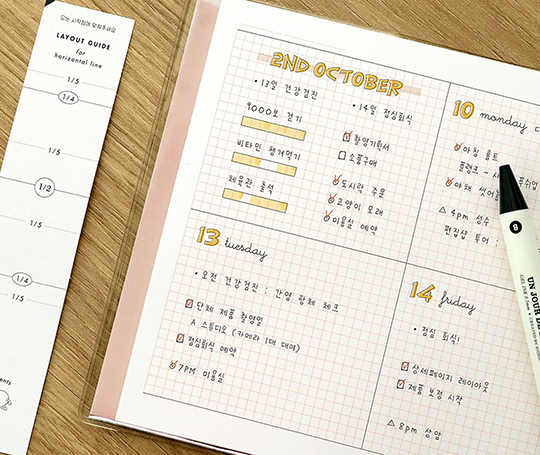 모눈 시작점에 맞춰주세요
LAYOUT GUIDE
for
horizontal line
1/5
1/4
1/5
1/2
1/4
1/5
2ND OCTOBER
• 13일 건강검진
9000보 걷기
비타민 챙겨먹기
체육관 출석
• 14일 점심회식
촬영기획서
소품구매
도시락 주문
고양이 모래
미용실 예약
10 monday
아침
플랭크 -
야채
△ 4pm 성수
편집샵 투어 :
13 tuesday
• 오전 건강검진 : 간염 항체 체크
단체 제품 촬영일
A 스튜디오 (카메라 1대 대여)
점심회식 예약
7PM 미용실
14 friday
• 점심 회식!
상세페이지 레이아웃
제품 보정 시작
△ 8pm 상암
B
UN JOUR DE
GEL INK 0.5mm